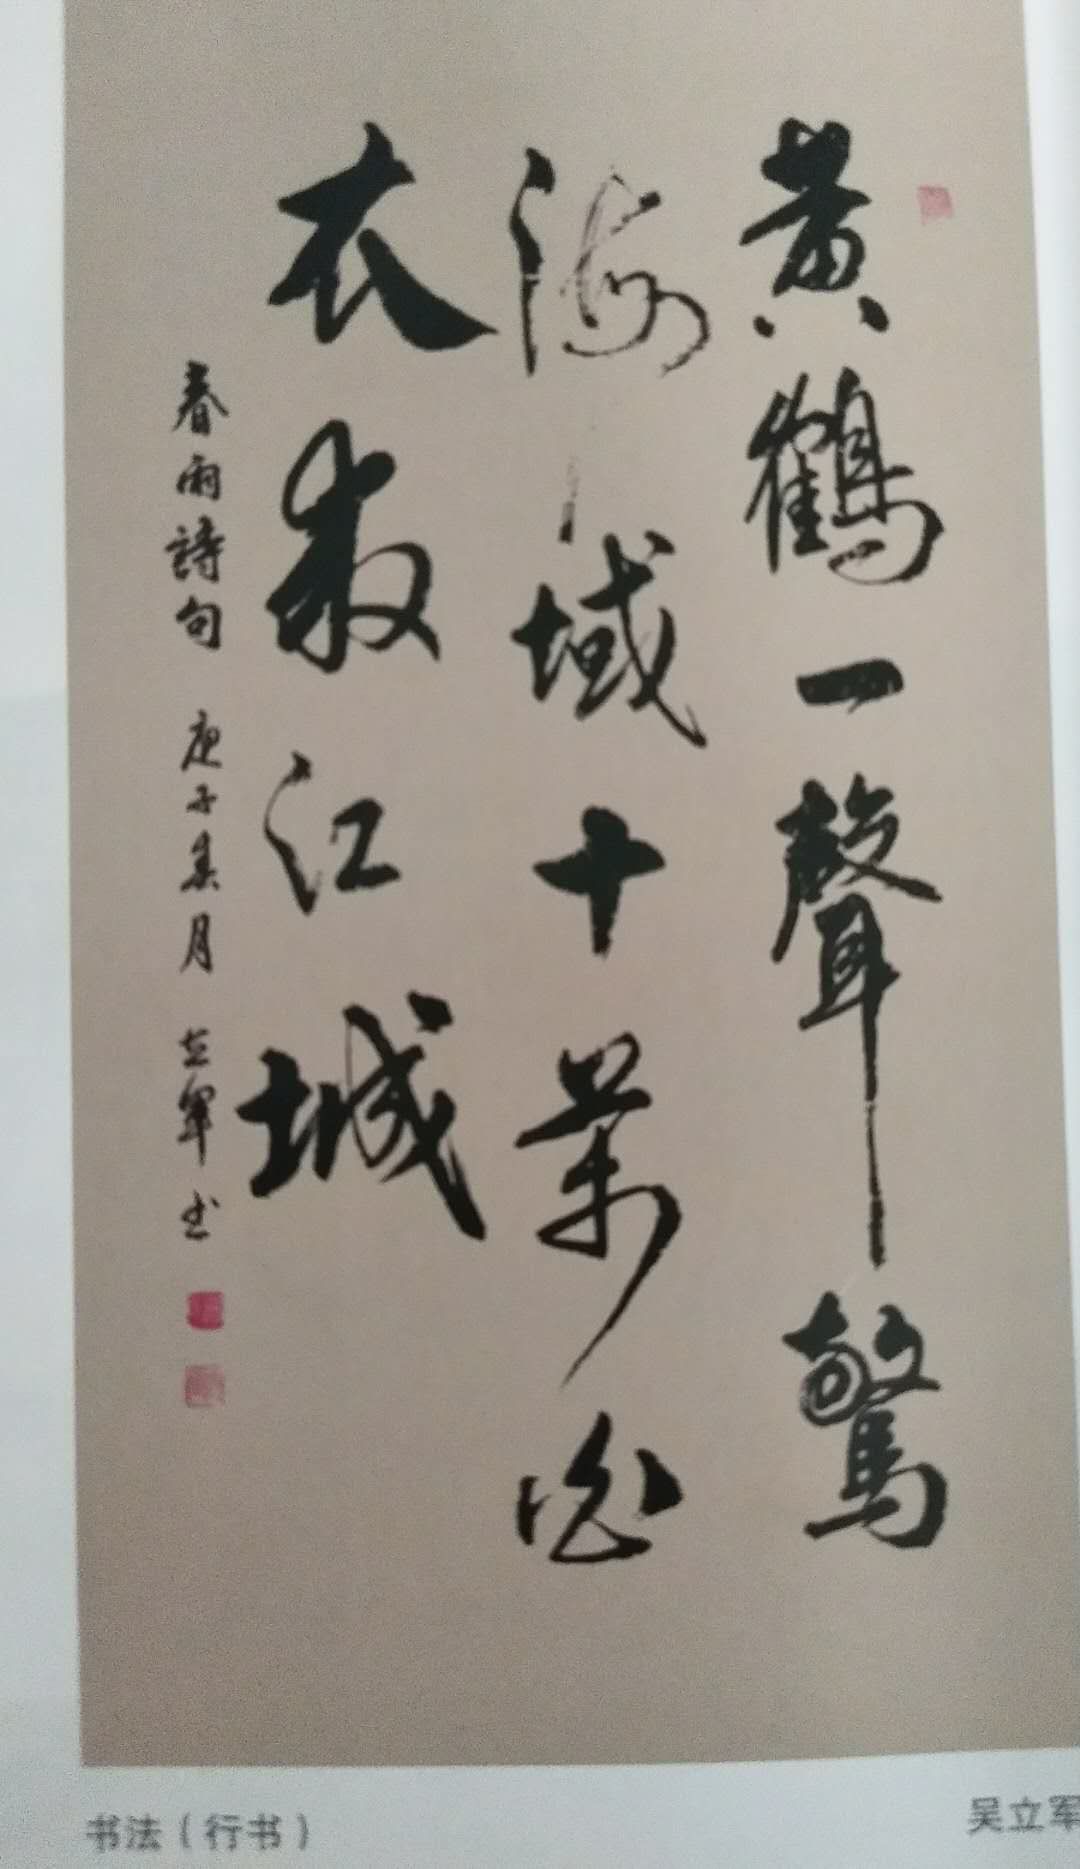 黄鹤一聲驚
海域十萬白
衣救江城
春雨詩句 庚子春月 立軍书
书法（行书）
吴立军